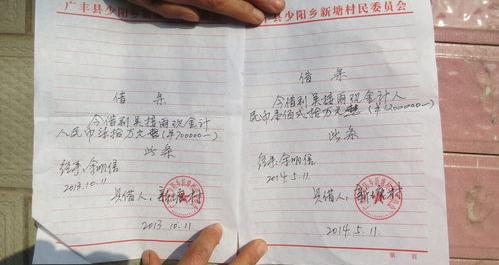 广丰县少阳乡新塘村民委员会
借条
今借到吴接雨现金计
人民币柒拾万元整(¥700000—)
此条
经手：余明信
2013.10.11
具借人：新塘村
2013.10.11
广丰县少阳乡新塘村民委员会
借条
今借到吴接雨现金计人
民币壹佰贰拾万元整(¥1200000—)
此条
经手：余明信
2014.5.11.
具借人：新塘村
2014.5.11
第 页